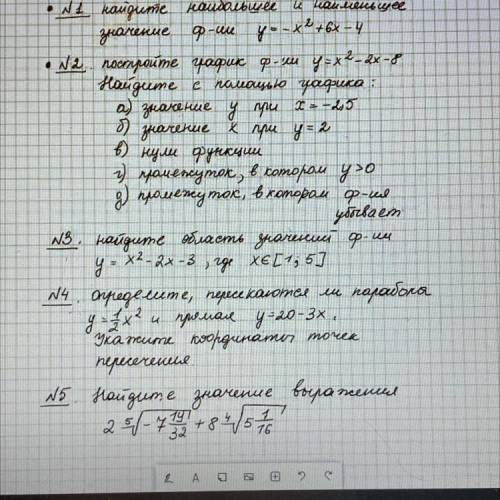 • №1 найдите наибольшее и наименьшее
значение ф-ии y = -x² + 6x - 4
• №2. постройте график ф-ии y = x² - 2x - 8
Найдите с помощью графика:
а) значение y при x = -2,5
б) значение x при y = 2
в) нули функции
г) промежуток, в котором y > 0
д) промежуток, в котором ф-ия
убывает
№3. найдите область значений ф-ии
y = x² - 2x - 3, где x∈[1; 5]
№4. определите, пересекаются ли парабола
y = 1/2 x² и прямая y = 20 - 3x.
Укажите координаты точек
пересечения
№5 Найдите значение выражения
2 ⁵√(-7 19/32) + 8 ⁴√(5 1/16)